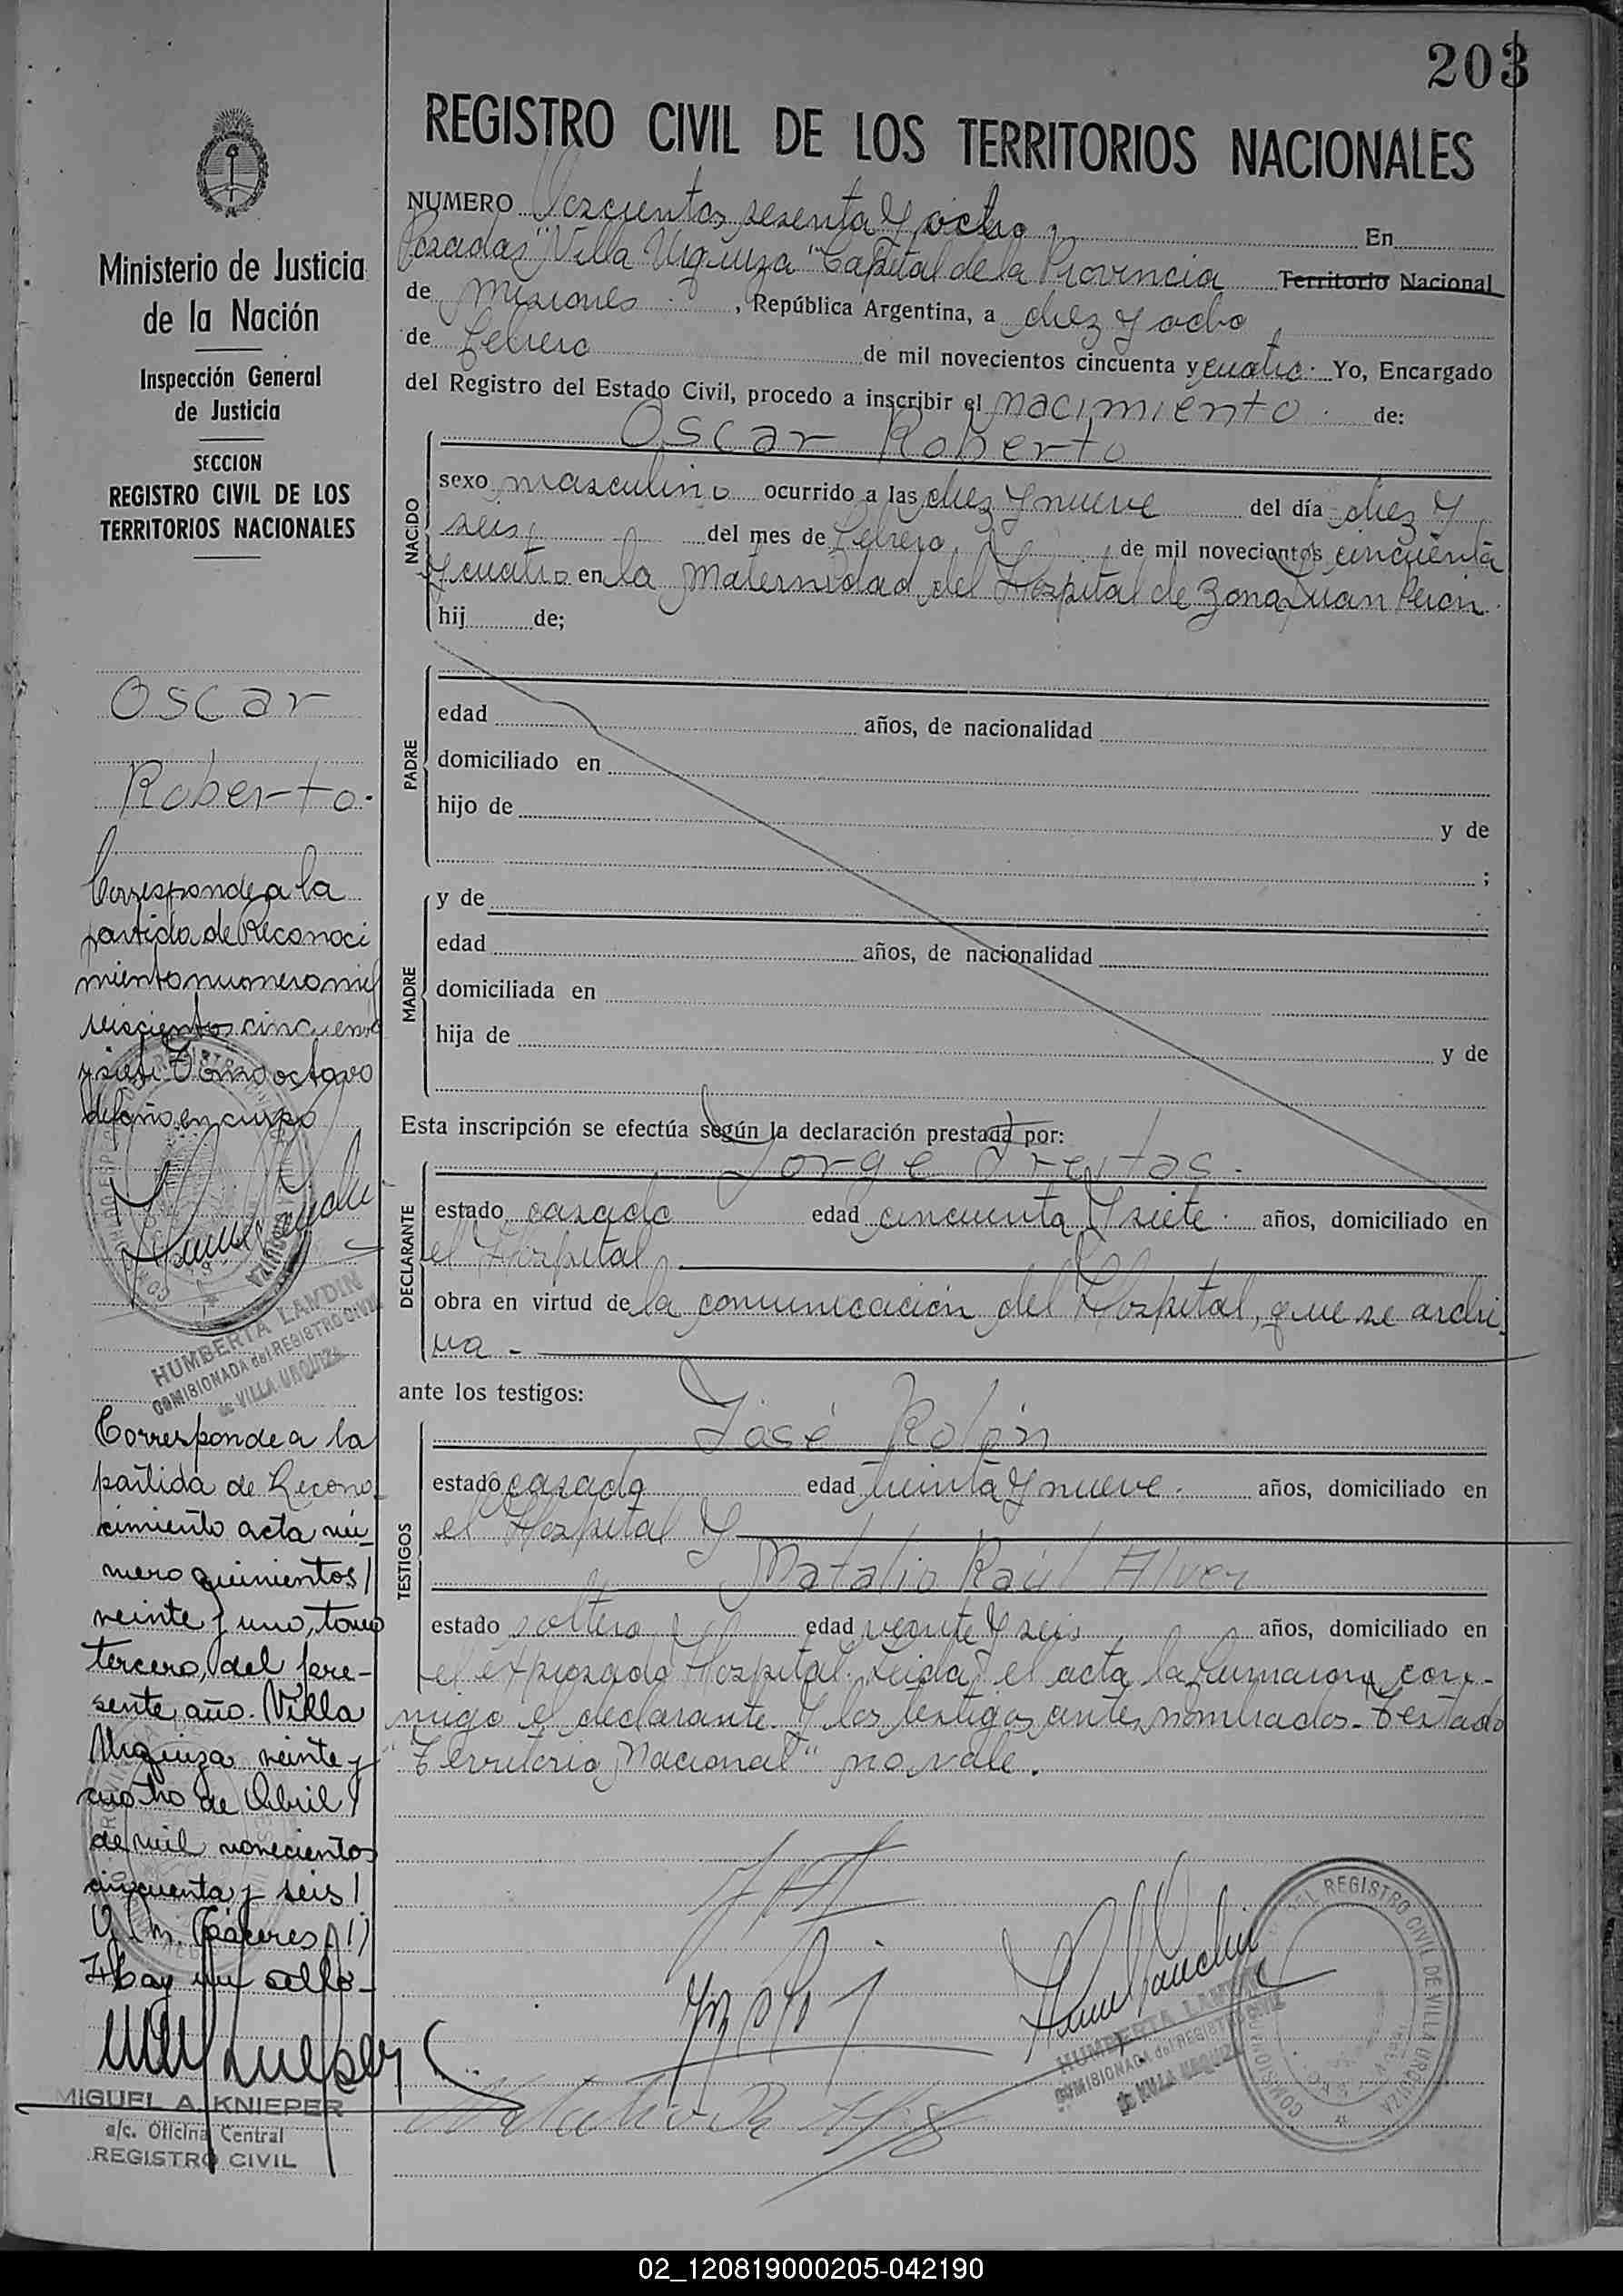 203
REGISTRO CIVIL DE LOS TERRITORIOS NACIONALES
NUMERO Doscientos sesenta y ocho. En
Posadas "Villa Urquiza" Capital de la Provincia Territorio Nacional
de Misiones, República Argentina, a diez y ocho
de febrero de mil novecientos cincuenta y cuatro. Yo, Encargado
del Registro del Estado Civil, procedo a inscribir el nacimiento. de:
NACIDO
Oscar Roberto
sexo masculino ocurrido a las diez y nueve del día diez y
seis, del mes de febrero de mil novecientos cincuenta
y cuatro en la Maternidad del Hospital de Zona Juan Perón.
hij de;
PADRE
edad años, de nacionalidad
domiciliado en
hijo de y de
;
MADRE
y de
edad años, de nacionalidad
domiciliada en
hija de y de
Esta inscripción se efectúa según la declaración prestada por:
DECLARANTE
Jorge Freytas.
estado casado edad cincuenta y siete. años, domiciliado en
el Hospital
obra en virtud de la comunicación del Hospital, que se archi
va.
ante los testigos:
TESTIGOS
José Rolón
estado casado edad treinta y nueve. años, domiciliado en
el Hospital y
Natalio Raúl Alvez
estado soltero edad veinte y seis años, domiciliado en
el expresado Hospital. Leida el acta la firmaron con-
migo el declarante y los testigos antes nombrados. Testado
"Territorio Nacional" no vale.
HUMBERTA LANDIN
COMISIONADA del REGISTRO CIVIL
de VILLA URQUIZA
DEL REGISTRO CIVIL DE VILLA URQUIZA
Ministerio de Justicia
de la Nación
Inspección General
de Justicia
SECCION
REGISTRO CIVIL DE LOS
TERRITORIOS NACIONALES
Oscar
Roberto.
Corresponde a la
partida de Reconoci
miento numero mil
seiscientos cincuenta
y siete Tomo octavo
del año en curso
HUMBERTA LANDIN
COMISIONADA del REGISTRO CIVIL
de VILLA URQUIZA
Corresponde a la
partida de Recono-
cimiento acta nú-
mero quinientos
veinte y uno, tomo
tercero, del pre-
sente año. Villa
Urquiza veinte y
cuatro de Abril
de mil novecientos
cincuenta y seis
M. Cáceres
Hay un sello-
MIGUEL A. KNIEPER
a/c. Oficina Central
REGISTRO CIVIL
02_120819000205-042190